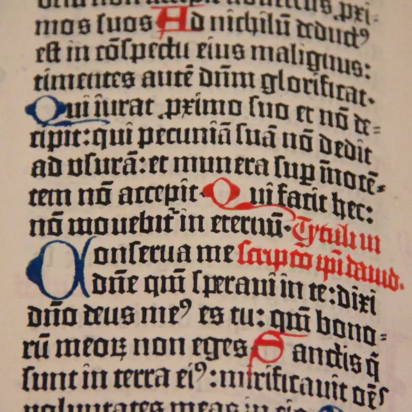 mos suos Ad nichilū deductꝰ
est in cōspectu eius malignus:
timentes autē dn̄m glorificat·
Qui iurat ꝓximo suo et nō de=
cipit: qui pecuniā suā nō dedit
ad vsurā: et munera sup̄ inocē=
tem nō accepit· Qui facit hec:
nō mouebit̄ in eternū· Tytulus
Conserua me scripto ip̄i dauid.
dn̄e qm̄ speraui in te: dixi
dn̄o deus meꝰ es tu: qm̄ bono=
rū meoꝝ non eges Sanctis q̄
sunt in terra eiꝰ: mirificauit oēs
voluntates meas in eis